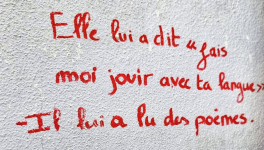 Elle lui a dit « fais
moi jouir avec ta langue »
- Il lui a lu des poèmes.